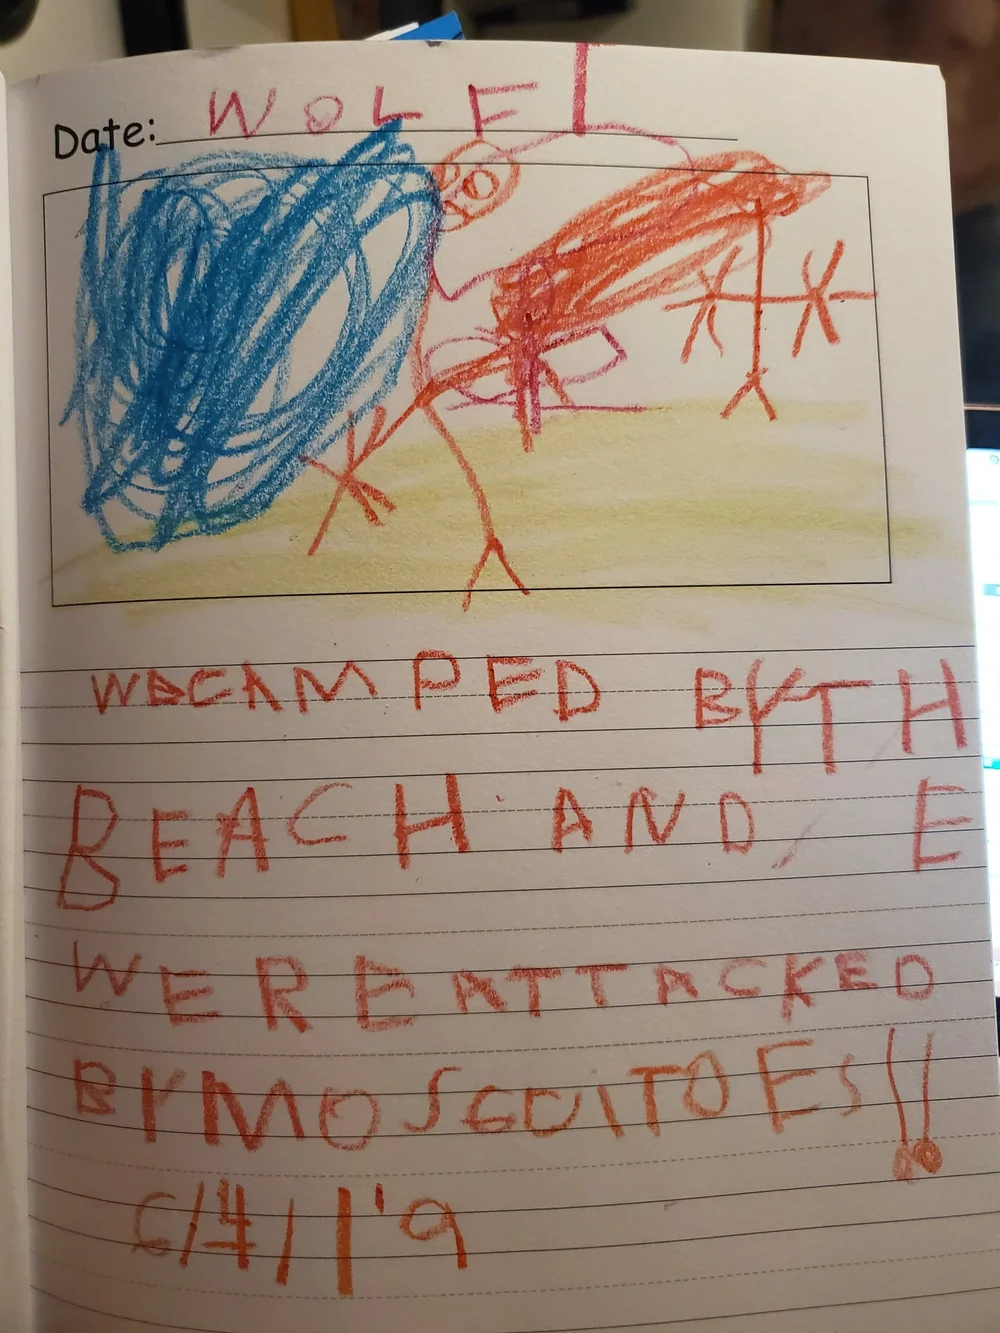 Date: WOLF
WE CAMPED BY TH
BEACH AND E
WERE ATTACKED
BY MOSGUITOES!!
6/4/19